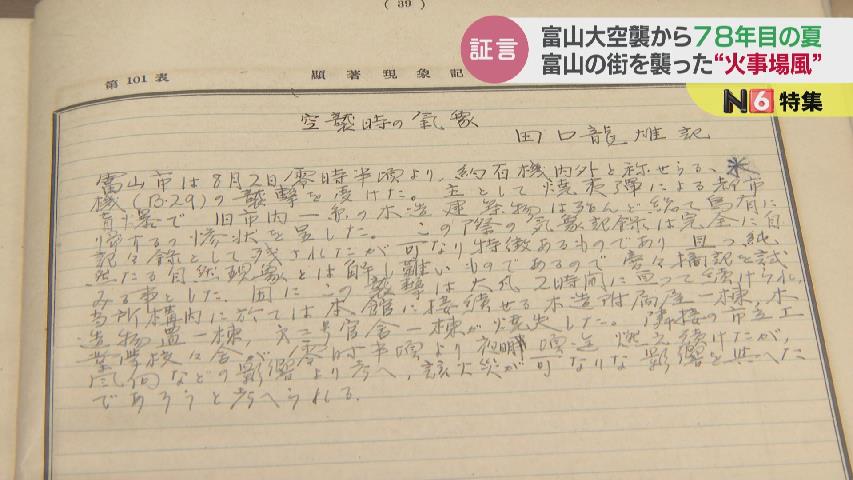 (39)
証言
富山大空襲から78年目の夏
富山の街を襲った“火事場風”
N6特集
第101表 顕著現象記
空襲時の氣象
田口龍雄記
富山市は8月2日零時半頃より、約百機内外と称せらる、米
機(B-29)の襲撃を受けた。主として焼夷彈による都市
盲爆で旧市内一条の木造建築物は殆んど総て烏有に
帰するの惨状を呈した。この際の気象記録は完全に自
記々録として残されたが可なり特徴あるものであり、且つ純
然たる自然現象とは解し難いものであるので愛々摘記を試
みる事とした。因にこの襲撃は大凡2時間に亘って続けられ、
当所構内に於ては本館に接続せる木造附属屋一棟、木
造物置一棟、第二号官舎一棟が焼失した。隣接の市立工
業学校々舎が零時半頃より夜明頃迄燃え続けたが、
風向などの影響より考へ、該火災が可なりな影響を与へた
であろうと考へられる。